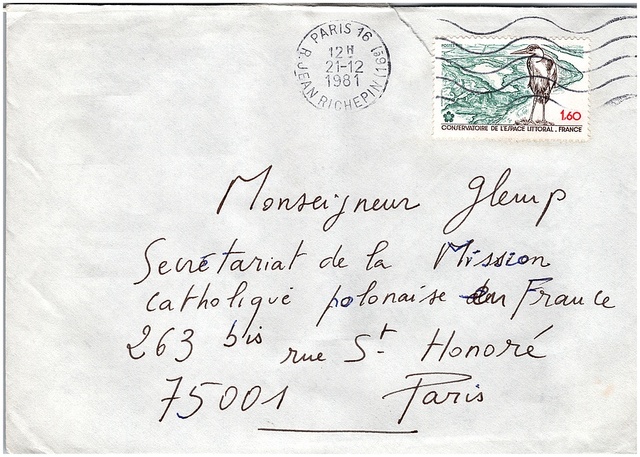 PARIS 16
12H
21-12
1981
R. JEAN RICHEPIN (16e)
POSTES
1,60
CONSERVATOIRE DE L'ESPACE LITTORAL. FRANCE
Monseigneur Glemp
Secrétariat de la Mission
catholique polonaise en France
263 bis rue St. Honoré
75001 Paris